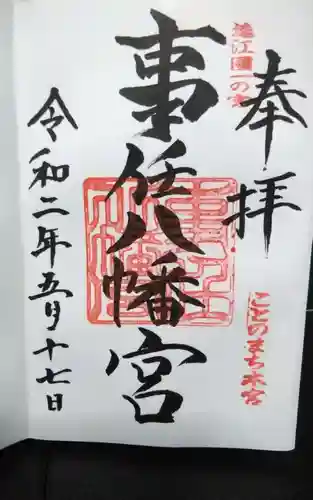 奉拝
遠江國一の宮
ことのまち本宮
事任八幡宮
令和二年五月十七日